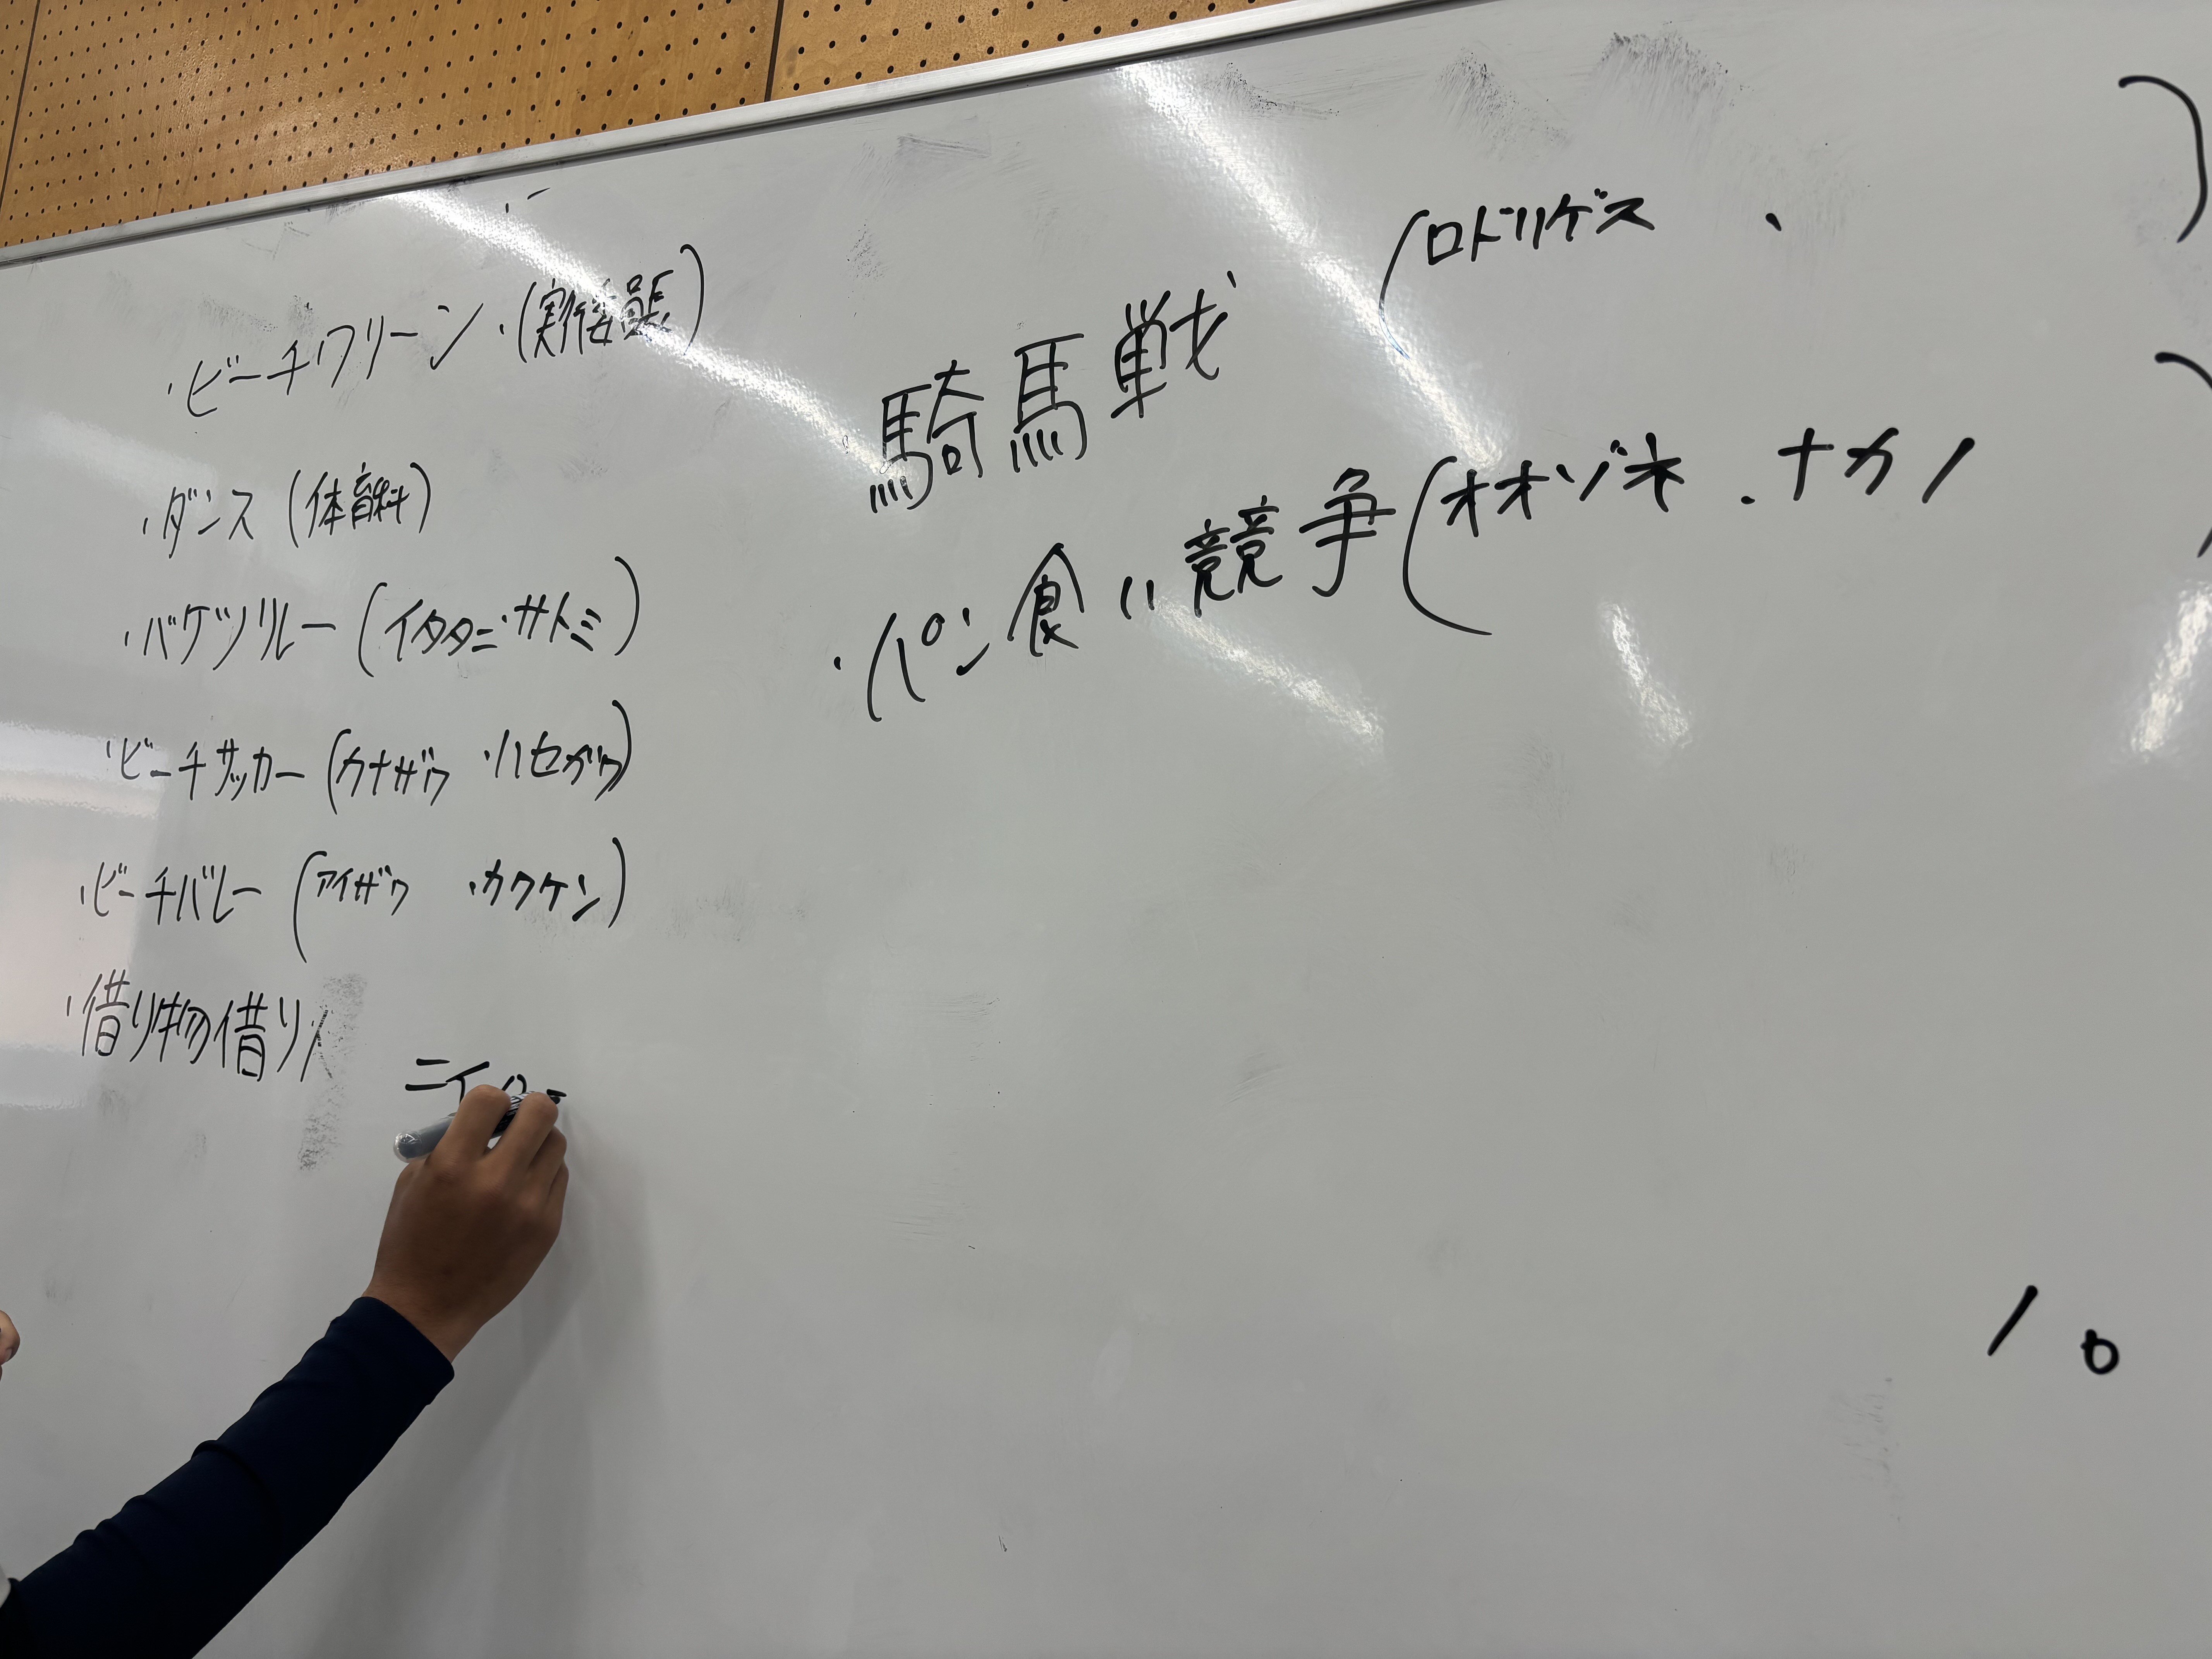 ・ビーチクリーン・(実行委員長)
・ダンス(体育科)
・バケツリレー(イタタニ・サトミ)
・ビーチサッカー(カナザワ・ハセガワ)
・ビーチバレー(アイザワ・カクケン)
・借り物借り人
ニイ
騎馬戦(ロドリゲス、)
・パン食い競争(オオゾネ・ナカノ)
10